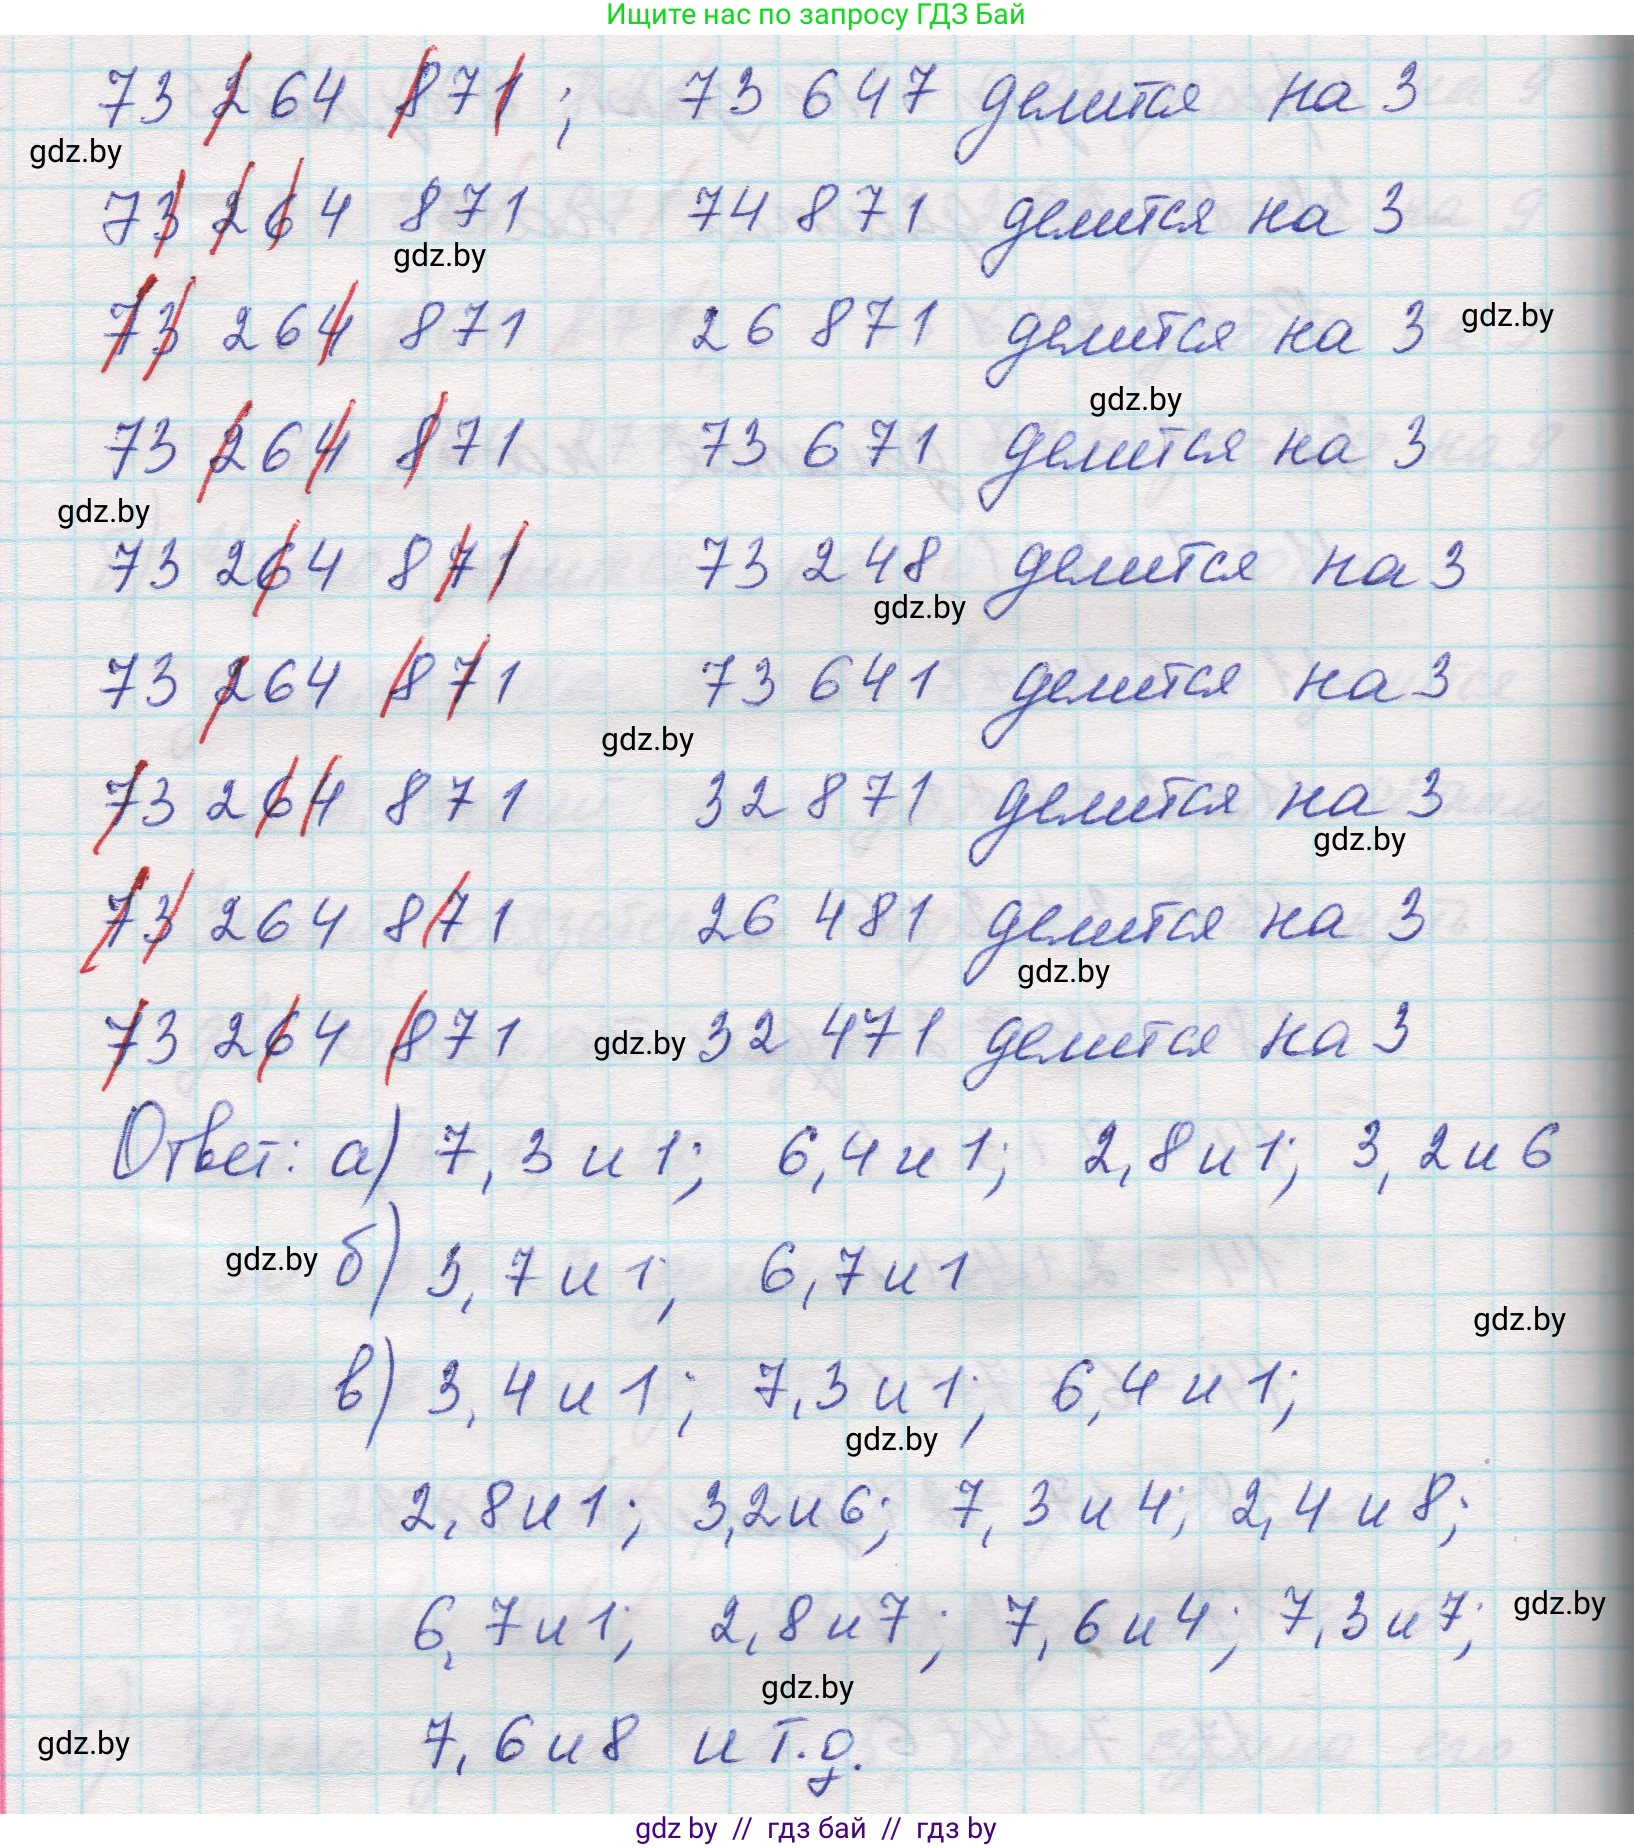 Ищите нас по запросу ГДЗ Бай
73 264 871; 73 647 делится на 3
gdz.by
73 264 871 74 871 делится на 3
gdz.by
73 264 871 26 871 делится на 3 gdz.by
gdz.by
73 264 871 73 671 делится на 3
gdz.by
73 264 871 73 248 делится на 3
gdz.by
73 264 871 73 641 делится на 3
gdz.by
73 264 871 32 871 делится на 3
gdz.by
73 264 871 26 481 делится на 3
gdz.by
73 264 871 gdz.by 32 471 делится на 3
Ответ: а) 7, 3 и 1; 6,4 и 1; 2,8 и 1; 3, 2 и 6
gdz.by б) 3, 7 и 1; 6,7 и 1
gdz.by
в) 3, 4 и 1; 7,3 и 1; 6,4 и 1;
gdz.by
2,8 и 1; 3,2 и 6; 7, 3 и 4; 2,4 и 8;
6,7 и 1; 2,8 и 7; 7,6 и 4; 7,3 и 7; gdz.by
gdz.by
gdz.by 7,6 и 8 и т.д.
gdz by // гдз бай // гдз by